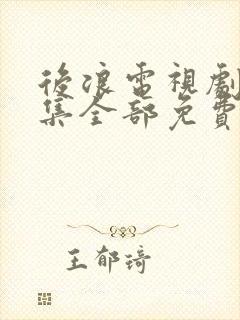 後浪電視劇
集全部免費
王郁琦